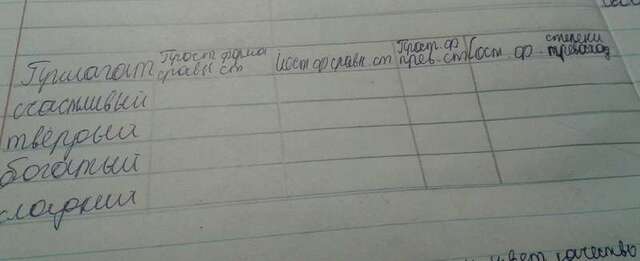 Прилагат Прост форма сравн ст Сост ф сравн. ст Прост. ф прев. ст Сост. ф. степени превосход
счастливый
твердый
богатый
сладкий
цвет качество